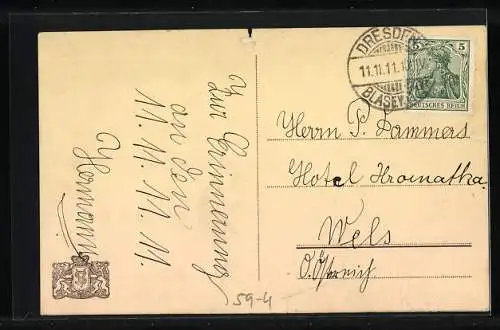 Zur Erinnerung
an den
11. 11. 11. 11.
Hermann
DRESDEN
11.11.11.11
BLASEW
5 5
DEUTSCHES REICH
Herrn P. Lammers
Hotel Kromatka
Wels
O. Östreich
59-4